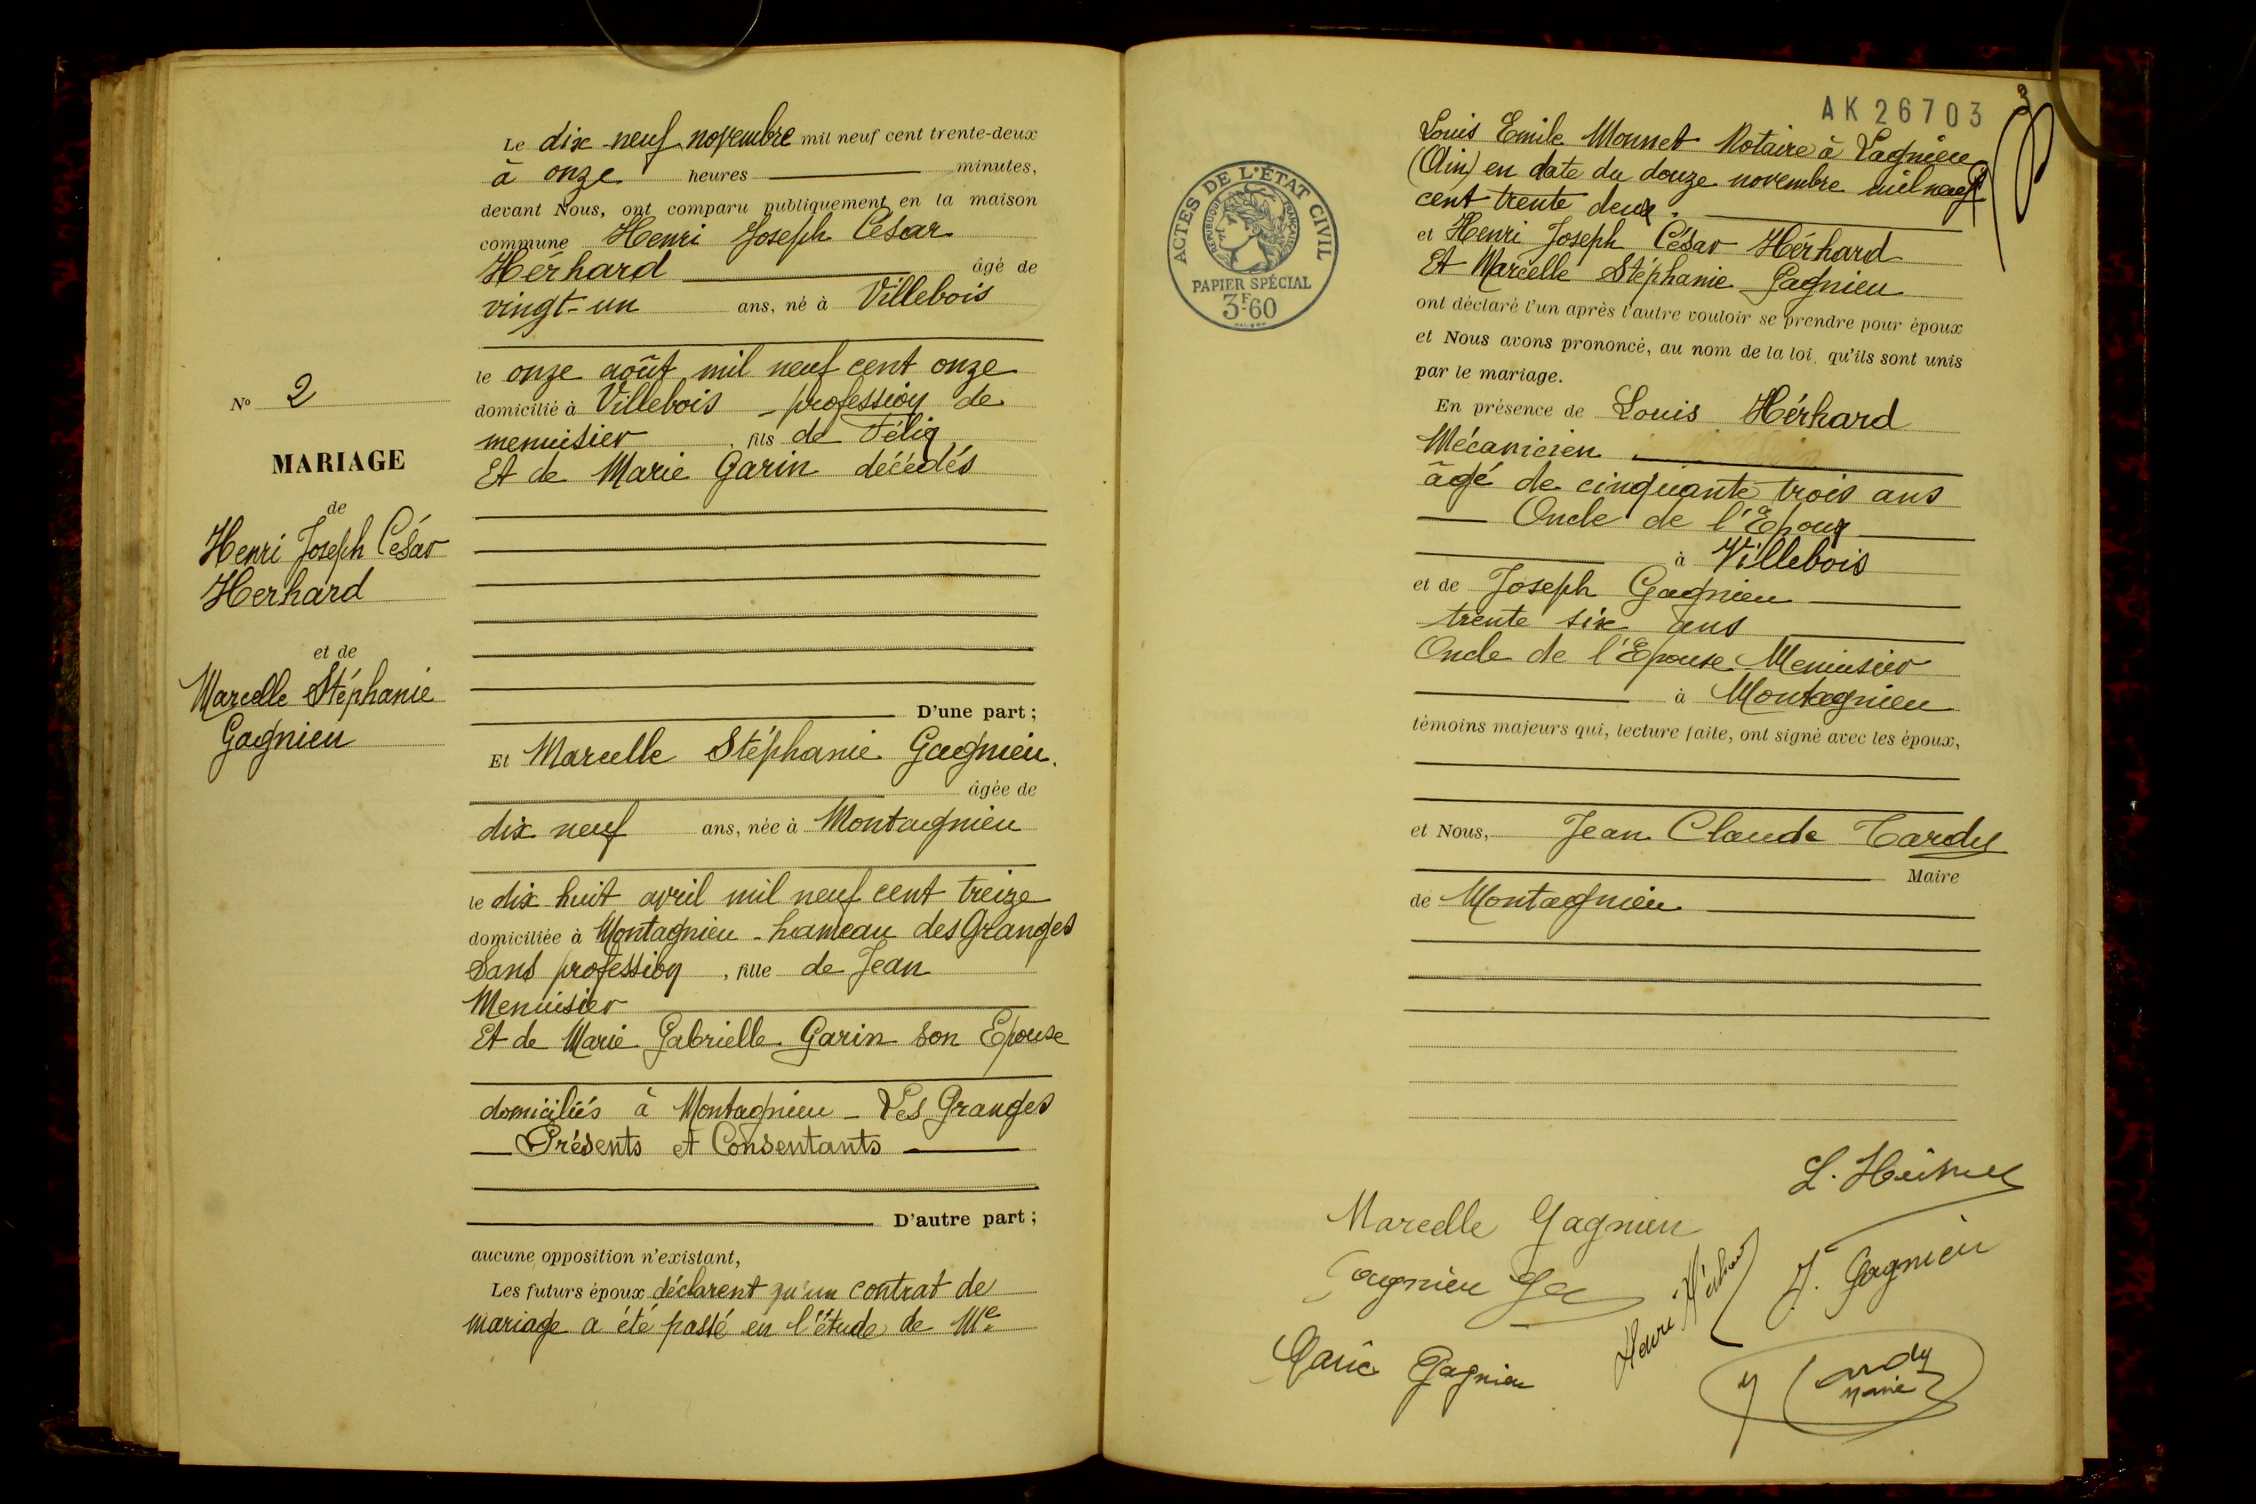 Le dix neuf novembre mil neuf cent trente-deux
à onze heures minutes,
devant Nous, ont comparu publiquement en la maison
commune Henri Joseph César
Hérhard âgé de
vingt-un ans, né à Villebois
le onze août mil neuf cent onze
domicilié à Villebois - profession de
menuisier, fils de Félix
Et de Marie Garin décédés
D'une part;
Nº 2
MARIAGE
de
Henri Joseph César
Herhard
et de
Marcelle Stéphanie
Gagnieu
Et Marcelle Stéphanie Gagnieu.
âgée de
dix neuf ans, née à Montagnieu
le dix huit avril mil neuf cent treize
domiciliée à Montagnieu - hameau des Granges
Sans profession, fille de Jean
Menuisier
Et de Marie Gabrielle Garin son Epouse
domiciliés à Montagnieu - Les Granges
Présents et Consentants
D'autre part;
aucune opposition n'existant,
Les futurs époux déclarent qu'un contrat de
mariage a été passé en l'étude de Me
AK 26703
3
ACTES DE L'ÉTAT CIVIL
RÉPUBLIQUE FRANÇAISE
PAPIER SPÉCIAL
3F60
Louis Emile Monnet Notaire à Lagnieu
(Ain) en date du douze novembre mil neuf
cent trente deux.
et Henri Joseph César Hérhard
Et Marcelle Stéphanie Gagnieu
ont déclaré l'un après l'autre vouloir se prendre pour époux
et Nous avons prononcé, au nom de la loi, qu'ils sont unis
par le mariage.
En présence de Louis Hérhard
Mécanicien
âgé de cinquante trois ans
Oncle de l'Epoux
à Villebois
et de Joseph Gagnieu
trente six ans
Oncle de l'Epouse Menuisier
à Montagnieu
témoins majeurs qui, lecture faite, ont signé avec les époux,
et Nous, Jean Claude Tardy
Maire
de Montagnieu
Marcelle Gagnieu
Gagnieu
Marie Gagnieu
Henri Hérhard
J. Gagnieu
Tardy